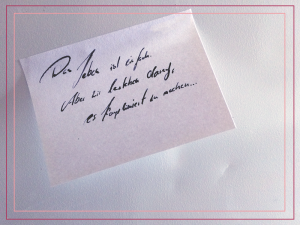 Das Leben ist einfach.
Aber wir bestehen darauf,
es kompliziert zu machen...